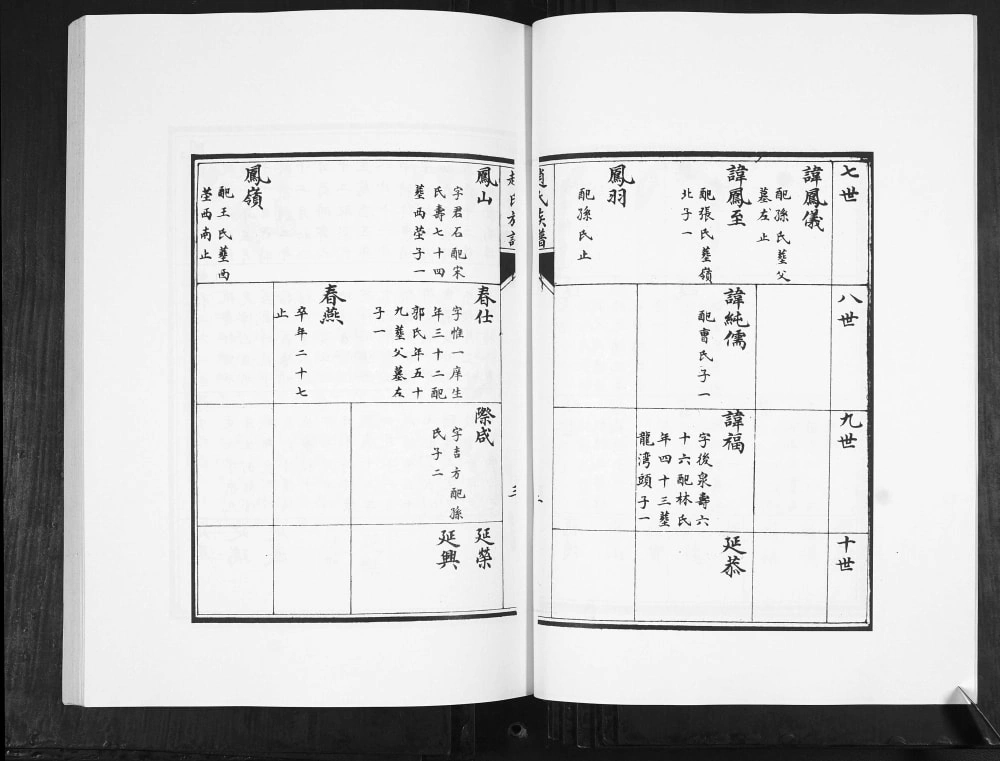 七世
諱鳳儀
配孫氏塟父
墓左止
諱鳳至
配張氏塟嶺
北子一
鳳羽
配孫氏止
八世
諱純儒
配曹氏子一
九世
諱福
字後泉壽六
十六配林氏
年四十三塟
龍湾頭子一
十世
延恭
趙氏族譜
三
鳳山
字君石配宋
氏壽七十四
塟西塋子一
鳳嶺
配王氏塟西
塋西南止
春仕
字惟一庠生
年三十二配
郭氏年五十
九塟父墓左
子一
春燕
卒年二十七
止
際咸
字吉方配孫
氏子二
延榮
延興